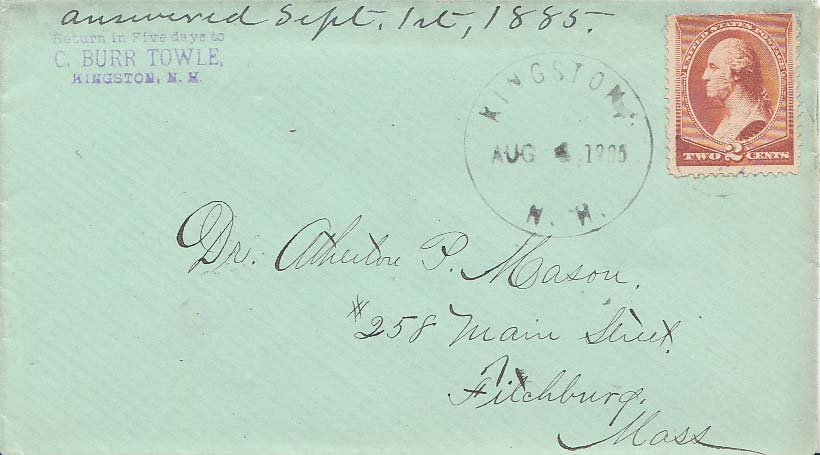 answered Sept. 1st, 1885.
Return in Five days to
C. BURR TOWLE,
KINGSTON, N. H.
UNITED STATES POSTAGE
TWO 2 CENTS
KINGSTON,
AUG 4 1885
N. H.
Dr. Atherton P. Mason.
#258 Main Street
Fitchburg.
Mass